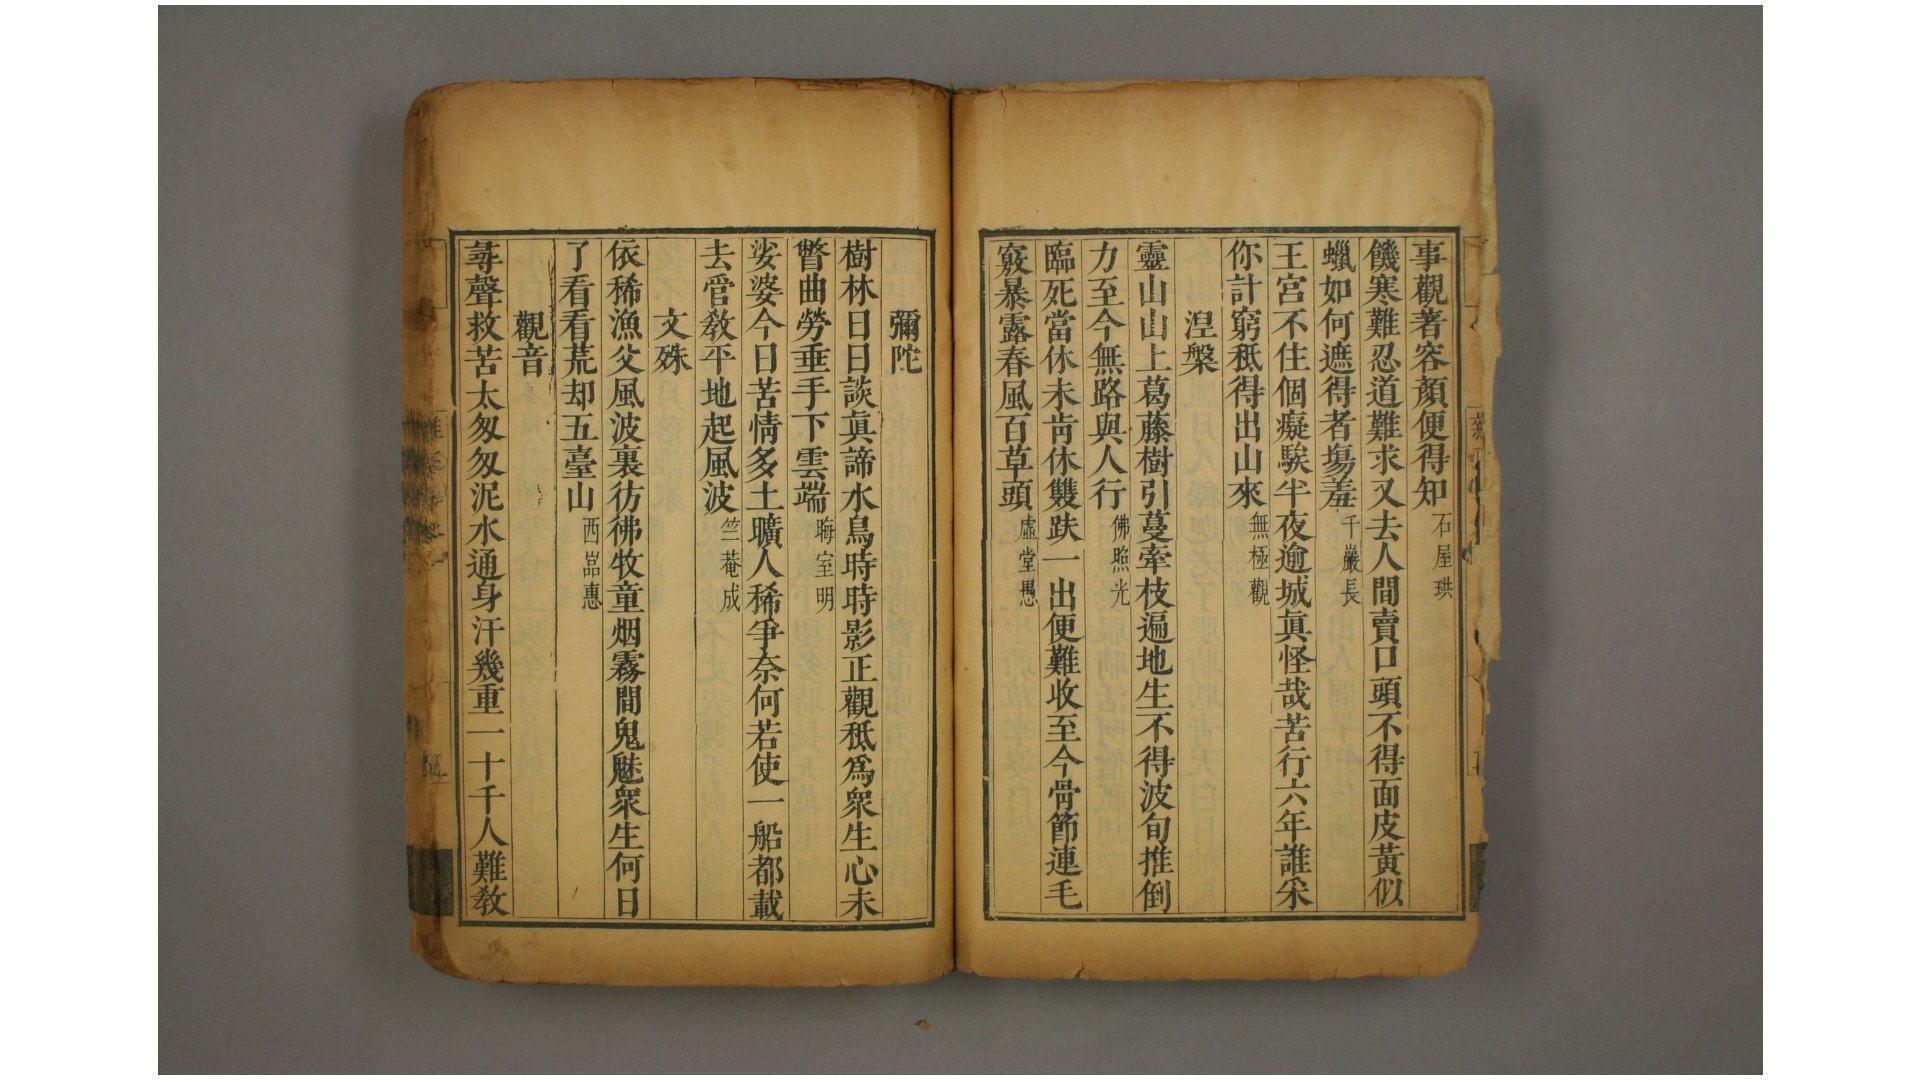 事觀著容顏便得知石屋珙
饑寒難忍道難求又去人間賣口頭不得面皮黃似
蠟如何遮得者塲羞千巖長
王宮不住個癡騃半夜逾城真怪哉苦行六年誰采
你計窮秪得出山來無極觀
湼槃
靈山山上葛藤樹引蔓牽枝遍地生不得波旬推倒
力至今無路與人行佛照光
臨死當休未肯休雙趺一出便難收至今骨節連毛
竅暴露春風百草頭虛堂愚
彌陀
樹林日日談真諦水鳥時時影正觀秪為眾生心未
瞥曲勞垂手下雲端晦室明
娑婆今日苦情多土曠人稀爭奈何若使一船都載
去管教平地起風波竺菴成
文殊
依稀漁父風波裏彷彿牧童烟霧間鬼魅眾生何日
了看看荒却五臺山西嵓惠
觀音
尋聲救苦太匆匆泥水通身汗幾重一十千人難教